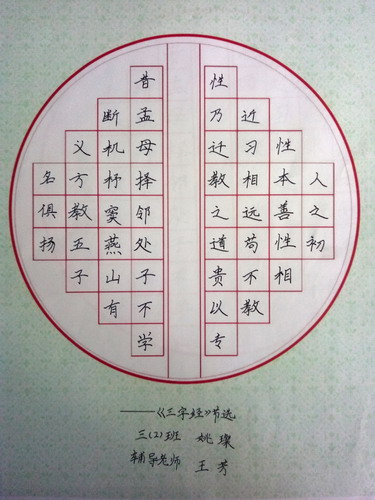 人之初
性本善性相
近习相远苟不教
性乃迁教之道贵以专
昔孟母择邻处子不学
断机杼窦燕山有
义方教五子
名俱扬
——《三字经》节选
三(2)班 姚璨
辅导老师 王芳